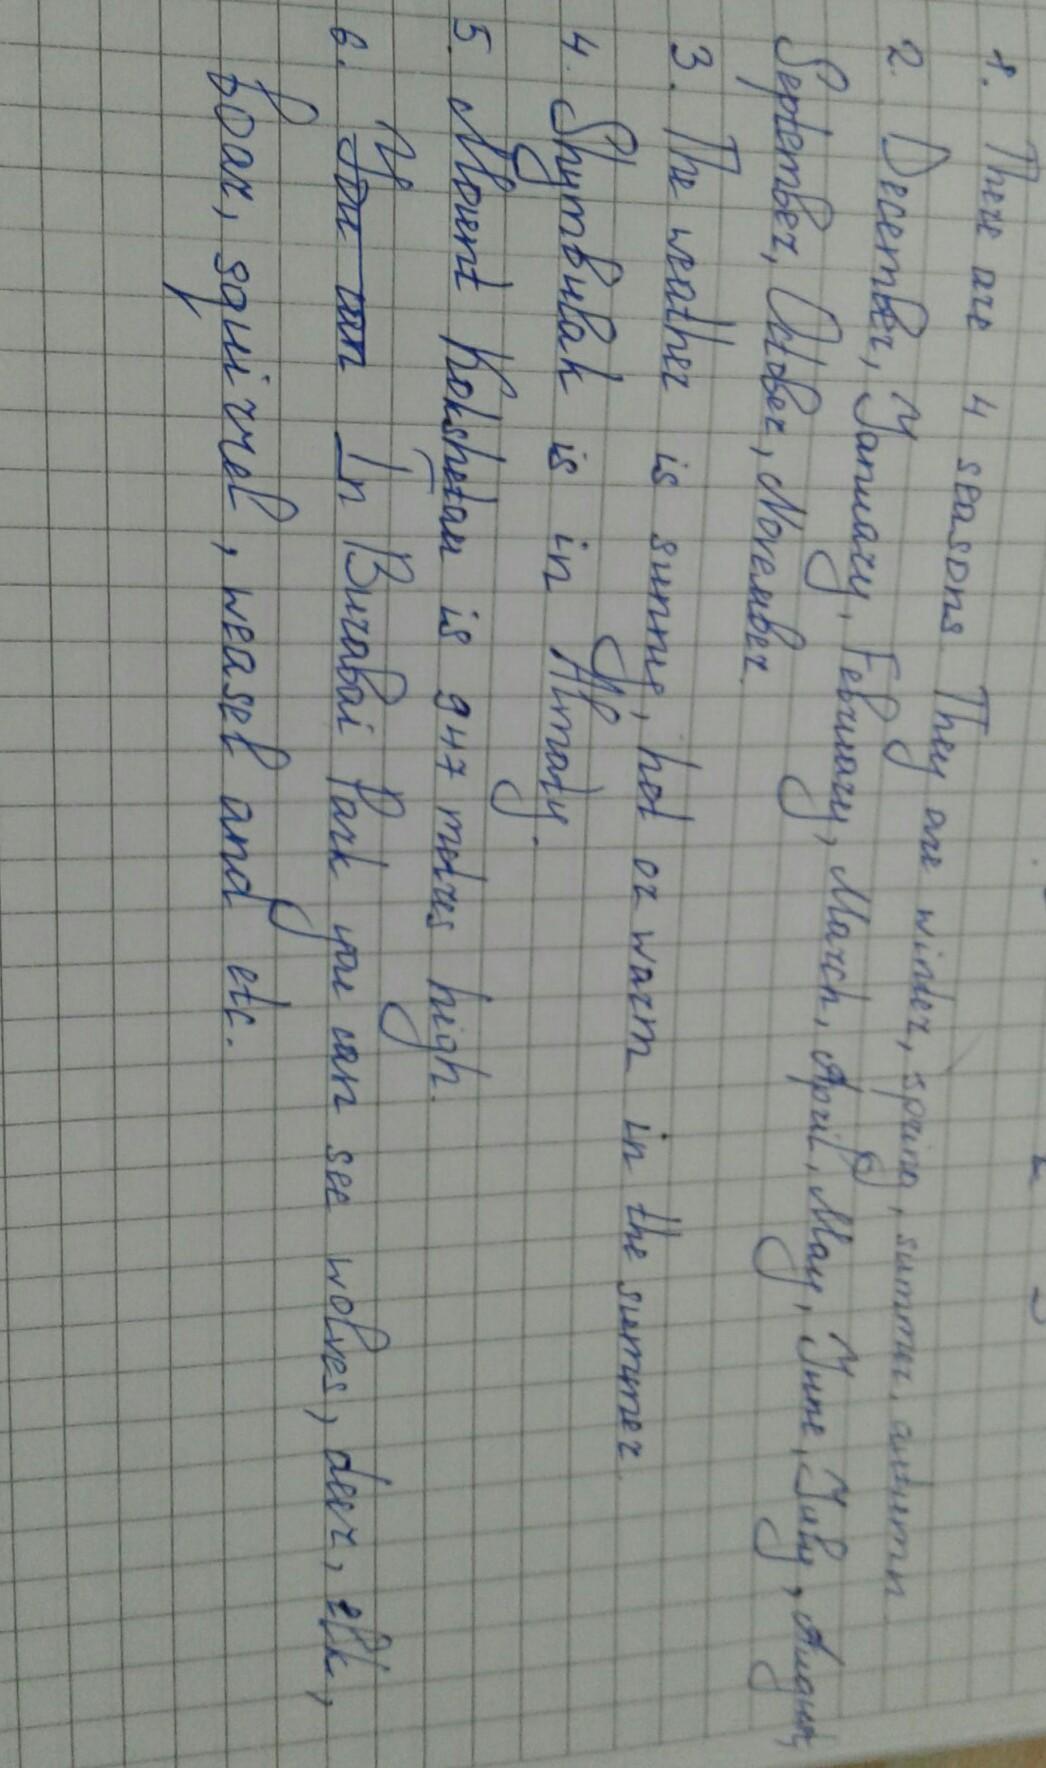 1. There are 4 seasons. They are winder, spring, summer, autumn
2. December, January, February, March, April, May, June, July, August,
September, October, November.
3. The weather is sunny, hot or warm in the summer.
4. Shymbulak is in Almaty.
5. Mount Kokshetau is 947 metres high.
6. In Burabai Park you can see wolves, deer, elk,
boar, squirrel, weasel and etc.